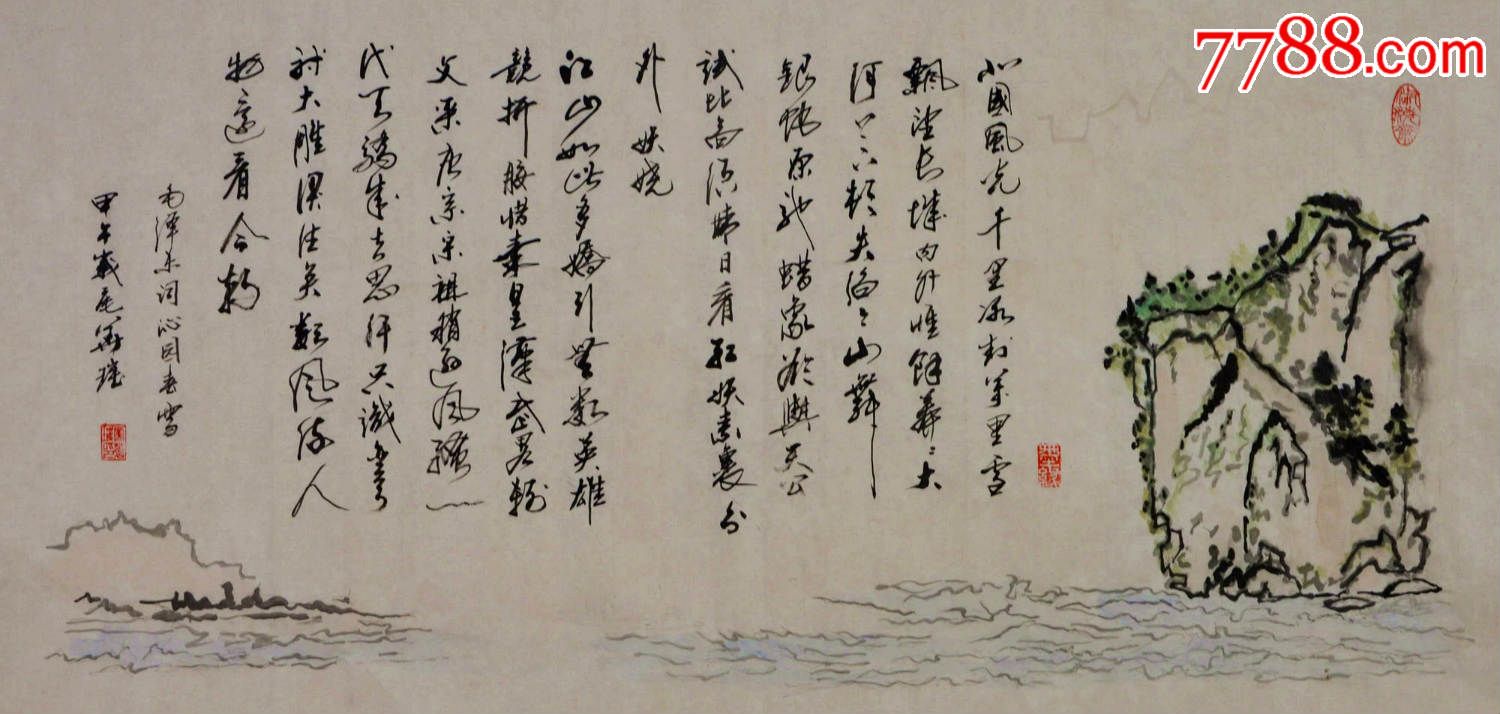 7788.com
北國風光千里冰封萬里雪
飄望長城內外惟餘莽〻大
河上下頓失滔〻山舞
銀蛇原馳蠟象欲與天公
試比高須晴日看紅妝素裹分
外妖嬈
江山如此多嬌引無數英雄
競折腰惜秦皇漢武畧輸
文采唐宗宋祖稍遜風騷一
代天驕成吉思汗只識彎
射大雕俱往矣數風流人
物還看今朝
毛澤東詞沁園春雪
甲午歲尾